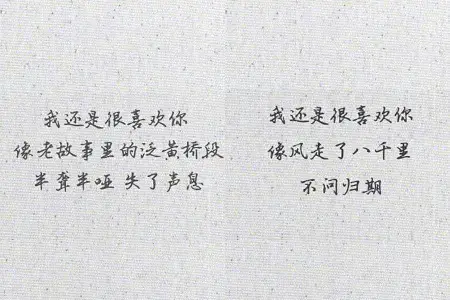 我还是很喜欢你
像老故事里的泛黄桥段
半聋半哑 失了声息
我还是很喜欢你
像风走了八千里
不问归期